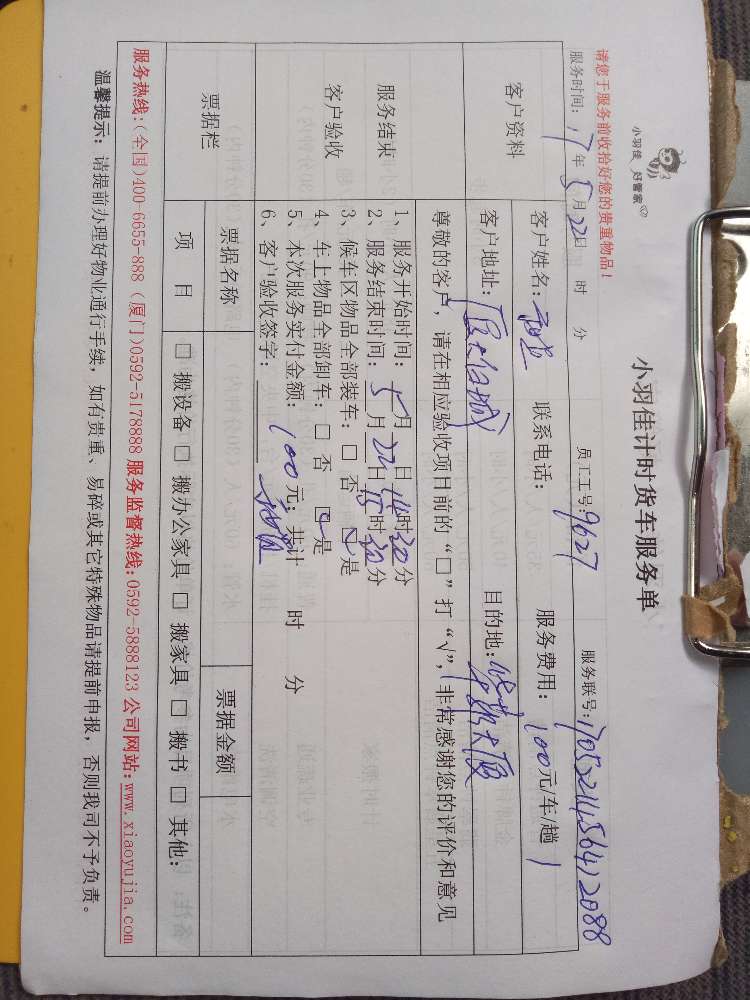 小羽佳 好管家
小羽佳计时货车服务单
请您于服务前收拾好您的贵重物品！
服务时间：17年5月22日 时 分 员工工号：9627 服务联号：
客户资料
客户姓名： 联系电话： 服务费用：100元/车/趟
客户地址：厦大白城 目的地：
尊敬的客户，请在相应验收项目前的“□”打“√”，非常感谢您的评价和意见
服务结束
客户验收
1、服务开始时间：5月 日14时30分
2、服务结束时间：5月22日15时30分
3、候车区物品全部装车：□ 否 ☑是
4、车上物品全部卸车：□ 否 ☑是
5、本次服务实付金额：100元；共计 时 分
6、客户验收签字：
票据栏
票据名称 票据金额
项 目 □ 搬设备 □ 搬办公家具 □ 搬家具 □ 搬书 □ 其他：
服务热线：(全国)400-6655-888 (厦门)0592-5178888 服务监督热线：0592-5888123 公司网站：www.xiaoyujia.com
温馨提示：请提前办理好物业通行手续，如有贵重、易碎或其它特殊物品请提前申报，否则我司不予负责。